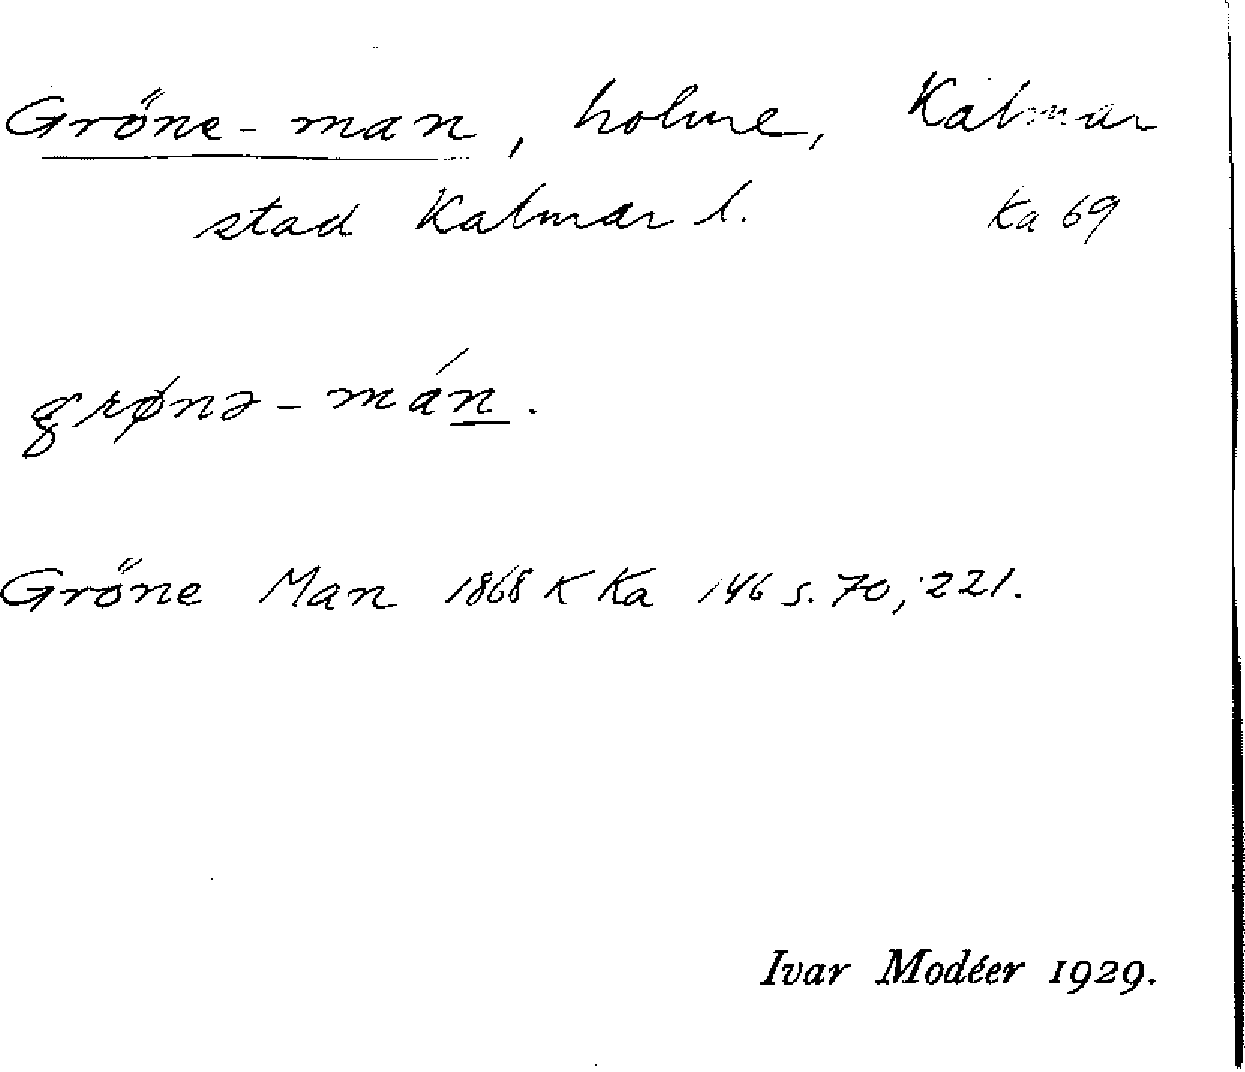 Gröne-man, holme, Kalmar
stad Kalmar l. Ka 69
grønə-mán.
Gröne Man 1868 K Ka 146 s. 70, 221.
Ivar Modéer 1929.